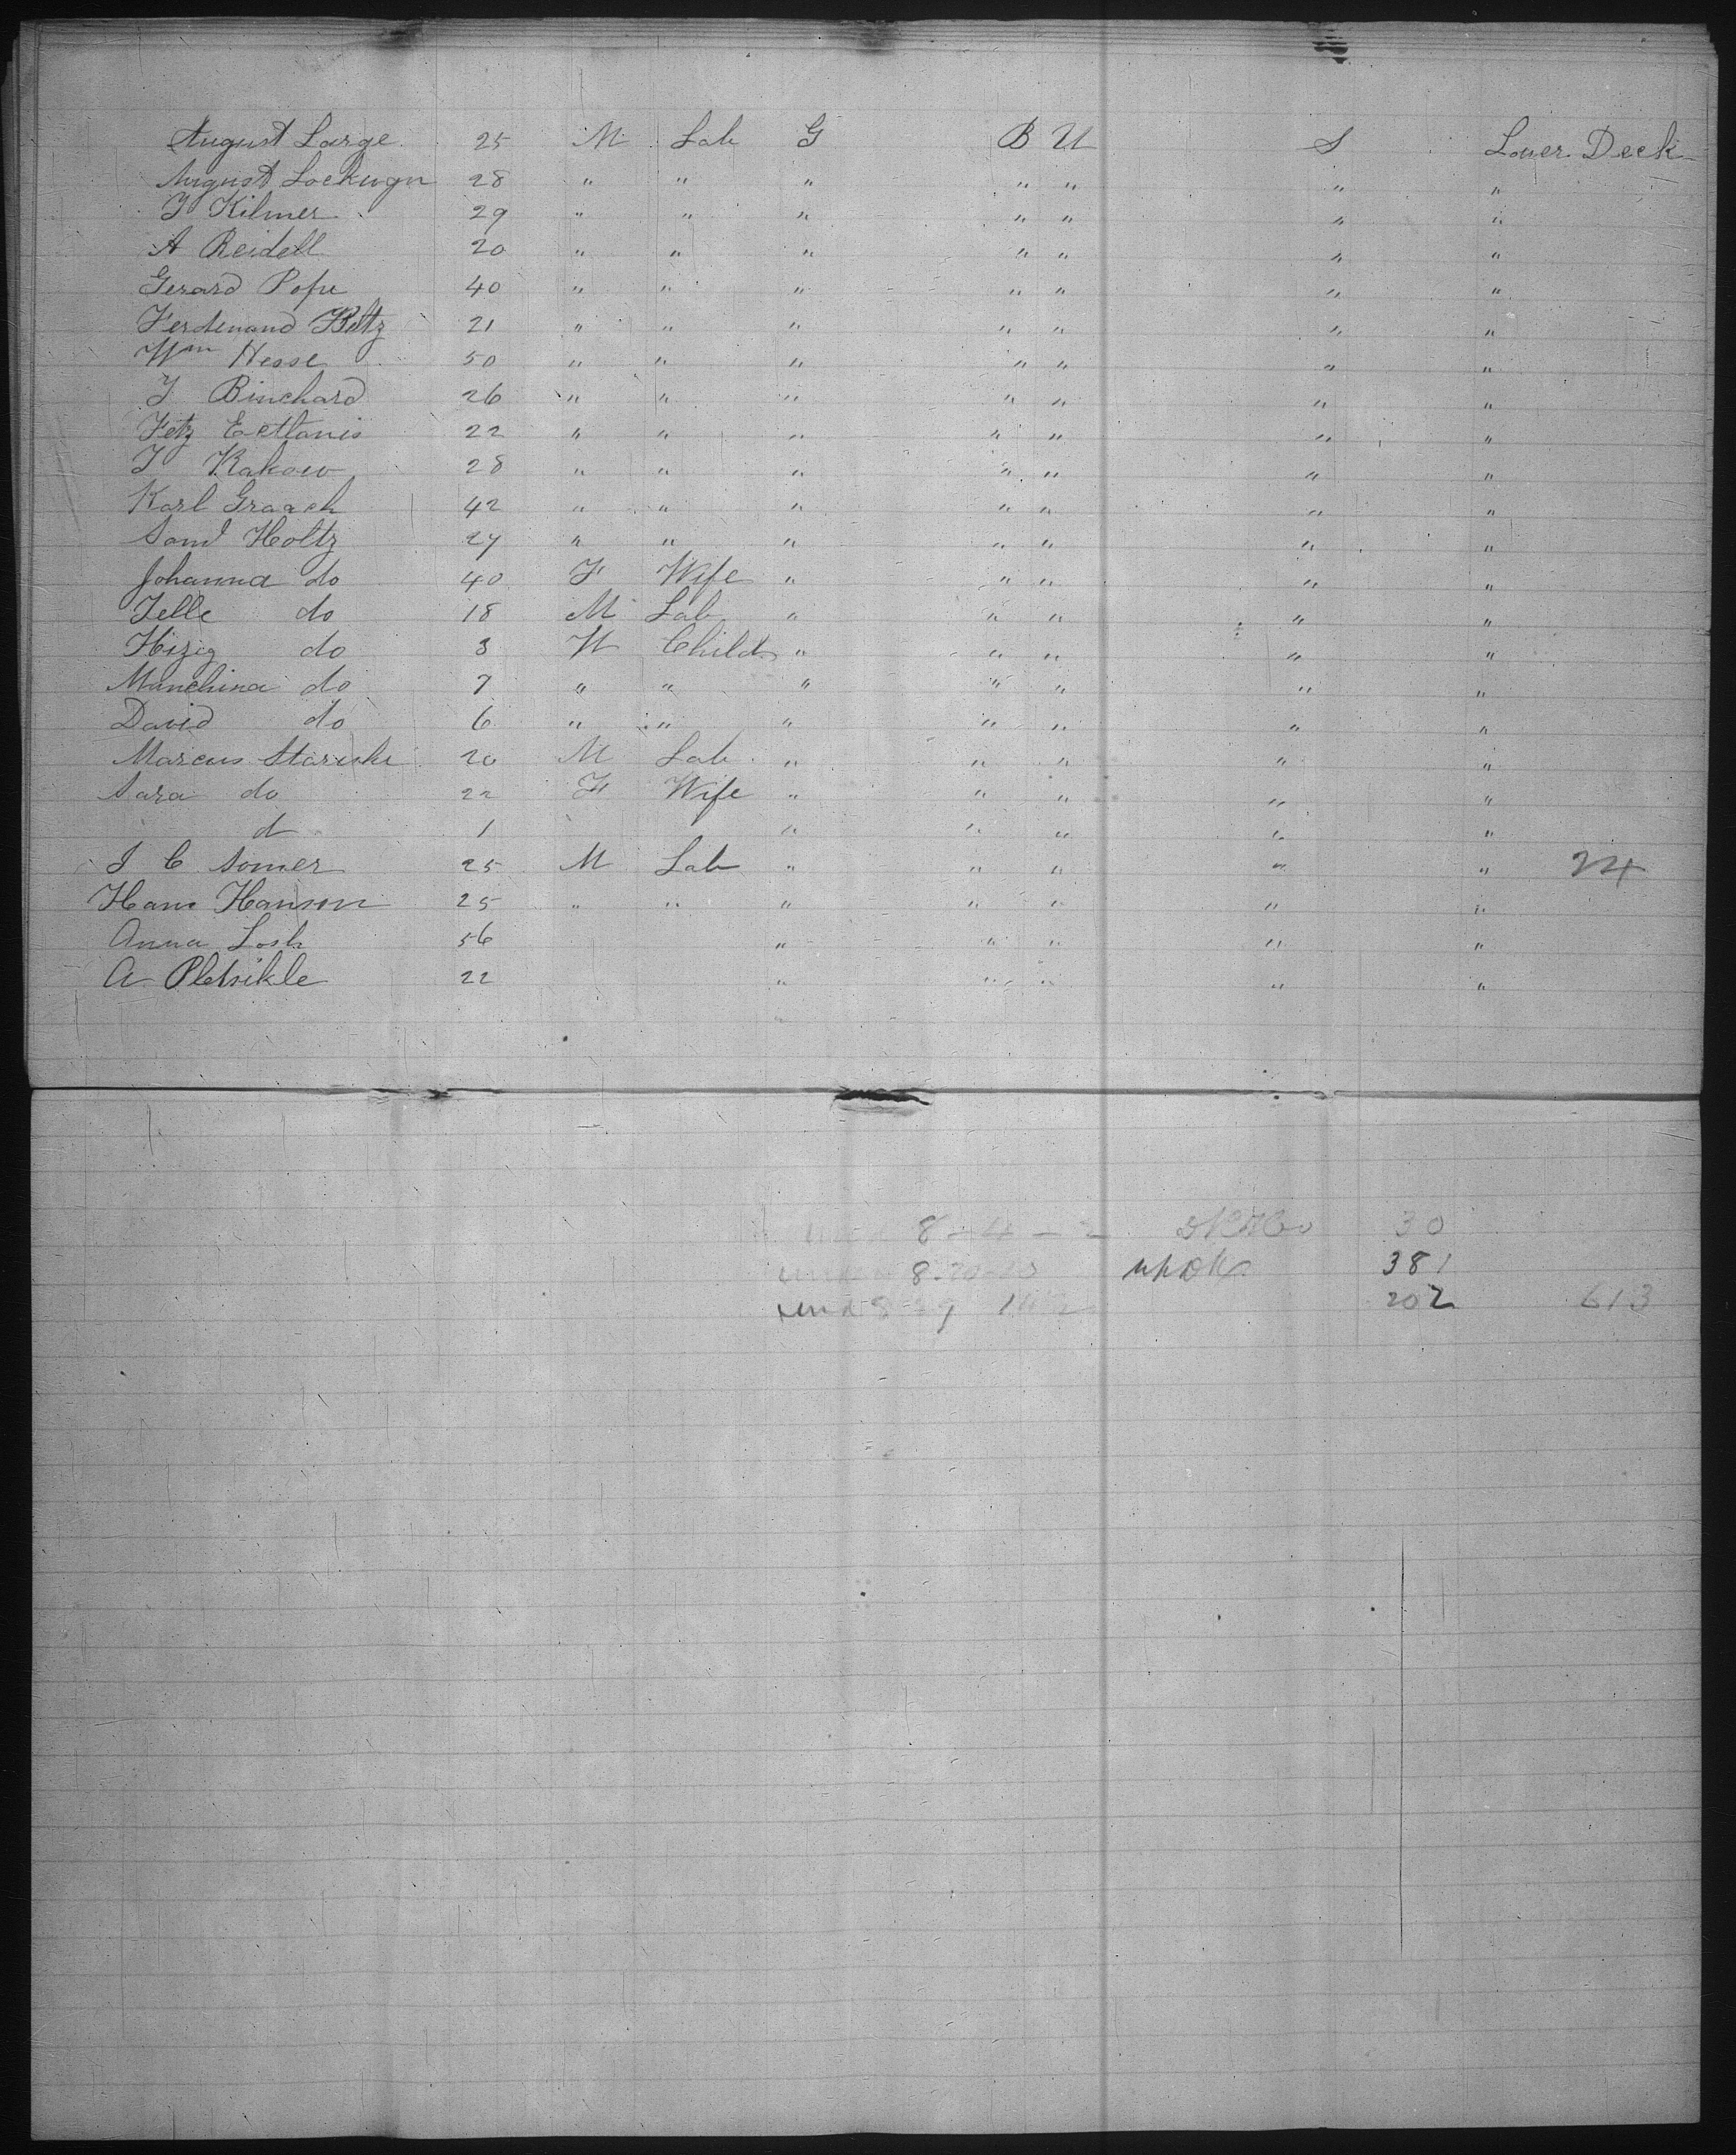 August Large 25 M Lab G B U S Lower Deck
August Lockwgn 28 " " " " " " "
J Kilmer 29 " " " " " " "
A Reidell 20 " " " " " " "
Gerard Pope 40 " " " " " " "
Ferdenand Beltz 21 " " " " " " "
Wm Hesse 50 " " " " " " "
J Binchard 26 " " " " " " "
Fetz 22 " " " " " " "
J Kakow 28 " " " " " " "
Karl Graach 42 " " " " " " "
Saml Holtz 27 " " " " " " "
Johanna do 40 F Wife " " " " "
Jelle do 18 M Lab " " " " "
Hizig do 3 Child " " " " "
Munchina do 7 " " " " " " "
David do 6 " " " " " " "
Marcus 20 M Lab " " " " "
Sara do 22 F Wife " " " " "
d 1 " " " " "
J C Somer 25 M Lab " " " " " 24
Hans Hanson 25 " " " " " " "
Anna Losh 56 " " " " "
A Pletsikle 22 " " " " "
8-4- 30
8-20- 381
202 613